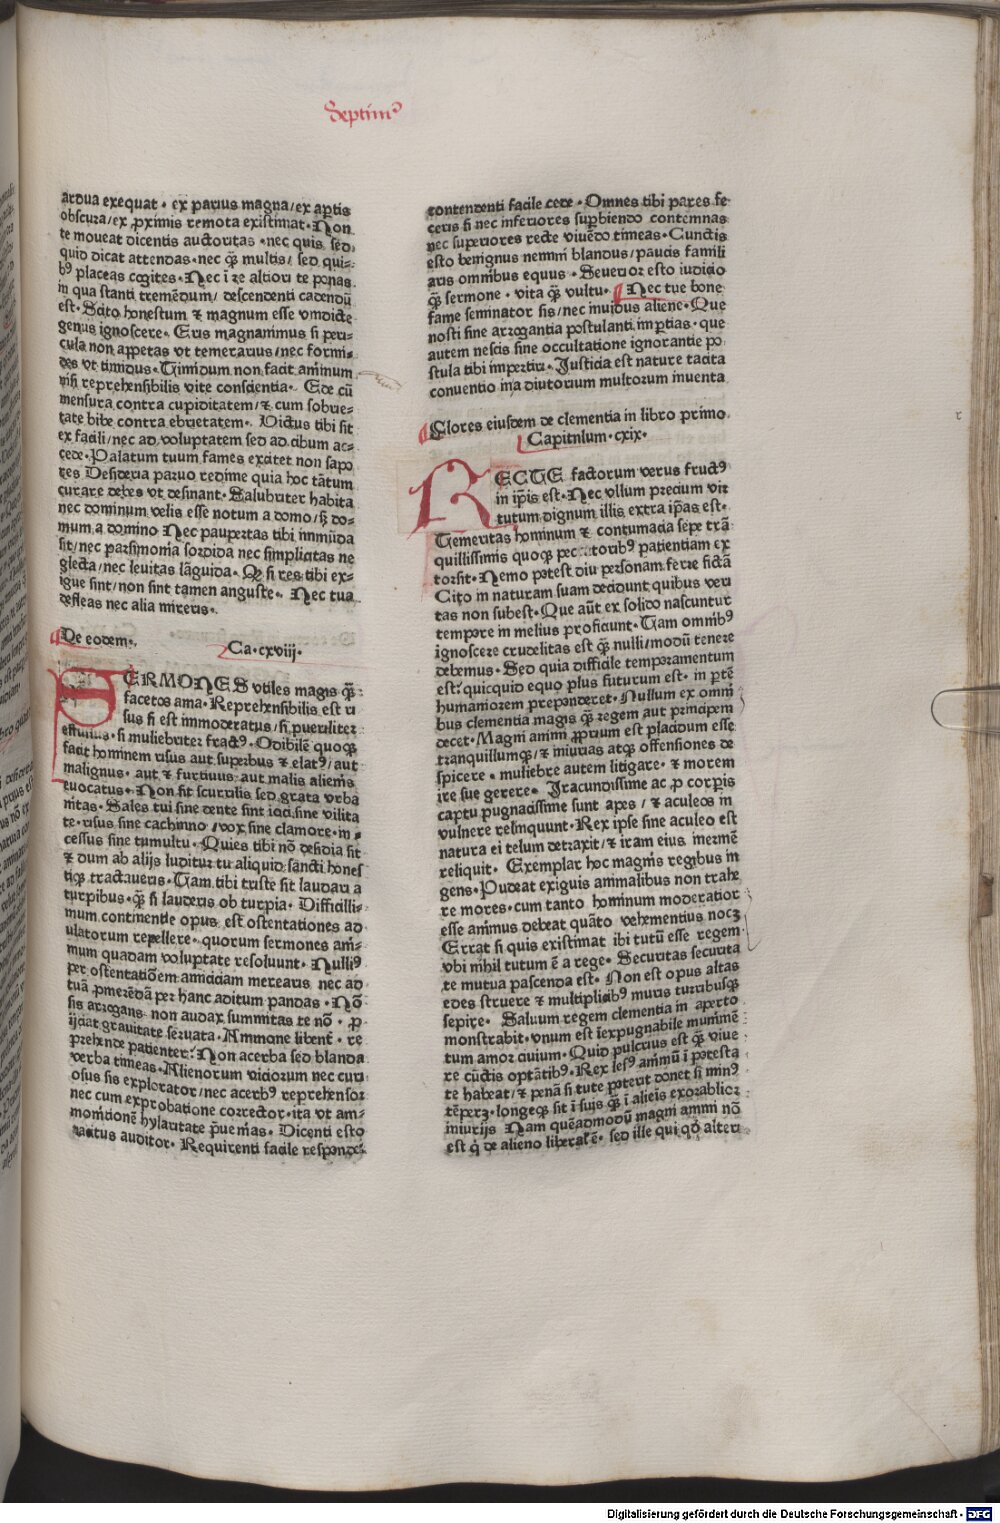 Septimꝰ
ardua exequat · ex paruis magna/ex aptis
obscura/ex ꝓximis remota existimat · Non
te moueat dicentis auctoritas · nec quis sed⸗
quid dicat attendas · nec qͣ multis/ sed qui⸗
bꝰ placeas cogites · Nec ī re altiori te ponas
in qua stanti tremēdum/ descendenti cadendū
est · Scito honestum ⁊ magnum esse vindicte
genus ignoscere · Eris magnanimus si peri⸗
cula non appetas vt temerarius/nec formi⸗
des vt timidus · Timidum non facit animum
nisi reprehensibilis vite conscientia · Ede cū
mensura contra cupiditatem/⁊ cum sobrie⸗
tate bibe contra ebrietatem · Victus tibi sit
ex facili/nec ad voluptatem sed ad cibum ac⸗
cede · Palatum tuum fames excitet non sapo
res Desideria paruo redime quia hoc tātum
curare debes vt desinant · Salubriter habita
nec dominum velis esse notum a domo/ sꝫ do⸗
mum a domino Nec paupertas tibi immūda
sit/nec parsimonia sordida nec simplicitas ne
glecta/nec leuitas lāguida · Qͦ si res tibi ex⸗
igue sint/non sint tamen anguste · Nec tua
defleas nec alia mireris ·
¶De eodem · Ca · cxviij ·
SERMONES vtiles magis qͣ
facetos ama · Reprehensibilis est ri
sus si est immoderatus/si pueriliter
effusus · si muliebriter fractꝰ · Odibilē quoqꝫ
facit hominem risus aut superbus ⁊ elatꝰ/aut
malignus · aut ⁊ furtiuus aut malis alienis
euocatus · Non sit scurrilis sed grata vrba
nitas · Sales tui sine dente sint ioci sine vilita
te · risus sine cachinno /vox sine clamore · in⸗
cessus sine tumultu · Quies tibi nō desidia sit
⁊ dum ab alijs luditur tu aliquid sancti hones
tiqꝫ tractaueris · Tam tibi triste sit laudari a
turpibus · qͣ si lauderis ob turpia · Difficilli⸗
mum continentie opus est ostentationes ad
ulatorum repellere · quorum sermones ani⸗
mum quadam voluptate resoluunt · Nulliꝰ
per ostentatiōem amiciciam merearis nec ad
tuā ꝓmerēdā per hanc aditum pandas · Nō
sis arrogans non audax summitas te nō · ꝓ⸗
ijciat grauitate seruata · Ammone libent · re
prehende patienter · Non acerba sed blanda
verba timeas · Alienorum viciorum nec curi
osus sis explorator/nec acerbꝰ reprehensor
nec cum exprobatione corrector · ita vt am⸗
monitionē hylaritate p̄uenias · Dicenti esto
tacitus auditor · Requirenti facile responde
contendenti facile cede · Omnes tibi pares fe
ceris si nec inferiores supbiendo contemnas
nec superiores recte viuēdo timeas · Cunctis
esto benignus nemini blandus/paucis famili
aris omnibus equus · Seuerior esto iudicio
qͣ sermone · vita qͣ vultu · ¶Nec tue bone
fame seminator sis/nec inuidus aliene · Que
nosti sine arrogantia postulanti impertias · que
autem nescis sine occultatione ignorantie po
stula tibi impertiri · Justicia est nature tacita
conuentio in adiutorium multorum inuenta
¶Flores eiusdem de clementia in libro primo ·
Capitulum · cxix ·
RECTE factorum verus fructꝰ
in ip̄is est · Nec vllum precium vir
tutum dignum illis extra ip̄as est ·
Temeritas hominum ⁊ contumacia sepe trā
quillissimis quoqꝫ pectoribꝰ patientiam ex
torsit · Nemo potest diu personam ferre fictā
Cito in naturam suam decidunt quibus veri
tas non subest · Que aūt ex solido nascuntur
tempore in melius proficiunt · Tam omnibꝰ
ignoscere crudelitas est qͣ nulli/modū tenere
debemus · Sed quia difficile temporamentum
est: quicquid equo plus futurum est · in ptē
humaniorem preponderet · Nullum ex omni
bus clementia magis qͣ regem aut principem
decet · Magni animi ꝓprium est placidum esse
tranquillumqꝫ/ ⁊ iniurias atqꝫ offensiones de
spicere · muliebre autem litigare · ⁊ morem
ire sue gerere · Iracundissime ac ꝓ corpis
captu pugnacissime sunt apes/ ⁊ aculeos in
vulnere relinquunt · Rex ipse sine aculeo est
natura ei telum detraxit/⁊ iram eius inermē
reliquit · Exemplar hoc magnis regibus in
gens · Pudeat exiguis animalibus non trahe
re mores · cum tanto hominum moderatior
esse animus debeat quāto vehementius nocꝫ
Errat si quis existimat ibi tutū esse regem
vbi nihil tutum ē a rege · Securitas securita
te mutua pascenda est · Non est opus altas
edes struere ⁊ multiplicibꝰ muris turribusqꝫ
sepire · Saluum regem clementia in aperto
monstrabit · vnum est īexpugnabile munimē
tum amor ciuium · Quid pulcrius est qͣ viue
re cūctis optātibꝰ · Rex lesꝰ animū ī potesta
te habeat/⁊ penā si tute poterit donet si minꝰ
tēperꝫ · longeqꝫ sit ī suis qͣ ī alieīs exorabilior
iniurijs Nam quēadmodū magni animi nō
est qͥ de alieno liberaľ ē · sed ille qui qͦd alteri
Digitalisierung gefördert durch die Deutsche Forschungsgemeinschaft · DFG